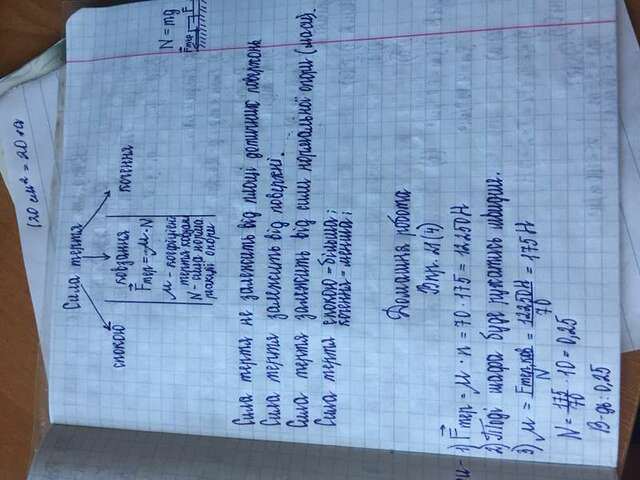 Сила тертя
спокою
ковзання
кочення
Fтер = μ · N
μ - коефіцієнт
тертя ковзан
N - сила норма
льної опори
N = mg
Fтер
F
Сила тертя не залежить від площі дотичних поверхонь
Сила тертя залежить від поверхні.
Сила тертя залежить від сили нормальної опори (маси).
Сила тертя спокою = більша;
кочення = менша;
Домашня робота
Впр. 21(4)
1) Fтер = μ · n = 70 · 175 = 12250 Н
2) Тоді шафа буде рухатись швидше.
3) μ = Fтер.ков / N = 12250 Н / 70 = 175 Н
N = 175 / 70 · 10 = 0,25
В-дь: 0,25
120 см² = 20